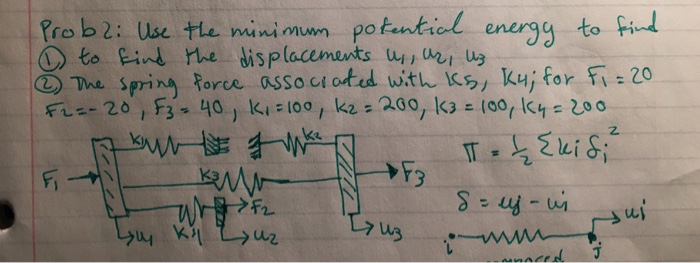 Prob 2: Use the minimum potential energy to find
① to find the displacements u1, u2, u3
② The spring force associated with K3, K4; for F1 = 20
F2 = -20, F3 = 40, K1 = 100, K2 = 200, K3 = 100, K4 = 200
K1 K2
F1 K3 F3
K4 F2
u1 u2 u3
π = 1/2 Σ ki δi²
δ = uj - ui
uj
i j